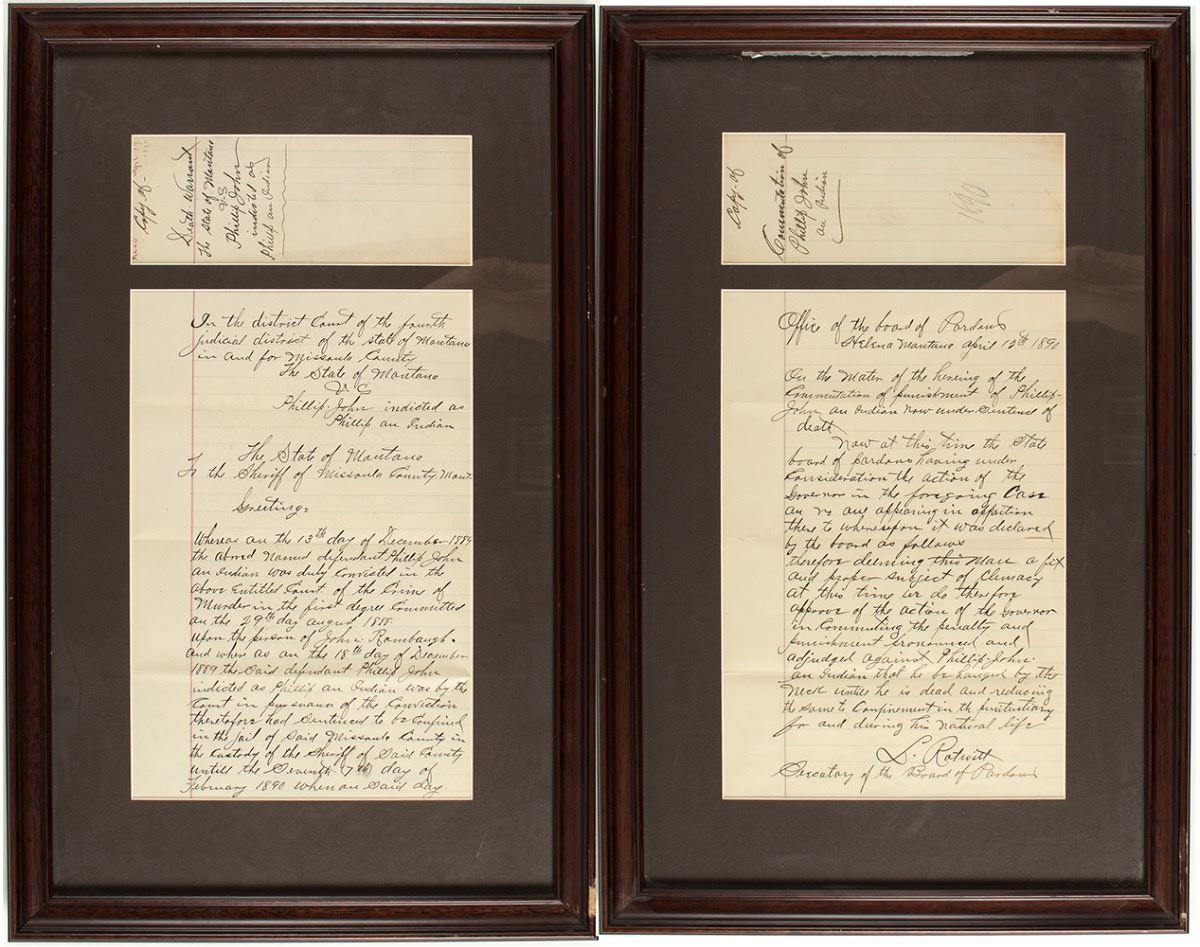 Copy of-
Death Warrant
The State of Montana
VS
Phillip John
indicted as
Philip an Indian
In the district Court of the fourth
judicial district of the state of Montana
in and for Missoula County
The State of Montana
VS
Phillip John indicted as
Phillip an Indian
The State of Montana
To the Sheriff of Missoula County, Mont.
Greeting=
Whereas on the 13th day of December 1889
the above named defendant Phillip John
an Indian was duly convicted in the
above Entitled Court of the Crime of
Murder in the first degree Committed
on the 29th day august 1888
upon the person of John Rombaugh.
and where as on the 18th day of December
1889 the Said defendant Phillip John
indicted as Phillip an Indian was by the
Court in pursuance of the Conviction
theretofore had Sentenced to be Confined
in the jail of Said Missoula County in
the Custody of the Sheriff of Said County
untill the Seventh 7th day of
February 1890 when on Said day
Copy of
Commutation of
Phillip John
an Indian
1890
Office of the board of Pardons
Helena Montana april 15th 1890
On the Mater of the hereing of the
Commutation of punishment of Phillip-
John an Indian now under Sentence of
death
Now at this time the State
board of pardons having under
Consideration the action of the
Governor in the foregoing Case
an no one appearing in
there to whereupon it was declared
by the board as follows
therefore deeming this Man a fit
and proper subject of Clemacy
at this time we do therefore
approve of the action of the Governor
in Commuting the penalty and
punishment pronounced and
adjudged against Phillip-John-
an Indian that he be hanged by the
Neck untile he is dead and reducing
the same to Confinement in th penitentiary
for and during his natural life
L. Rotwitt
Secratary of the Board of Pardons